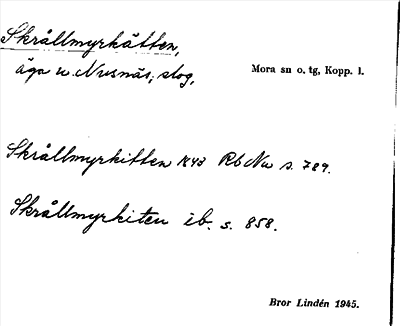 Skrållmyrkätten,
äga u. Nusnäs, skog,
Mora sn o. tg, Kopp. l.
Skrållmyrkitten 1843 Rb Nu s. 789.
Skrållmyrkiten ib. s. 858.
Bror Lindén 1945.